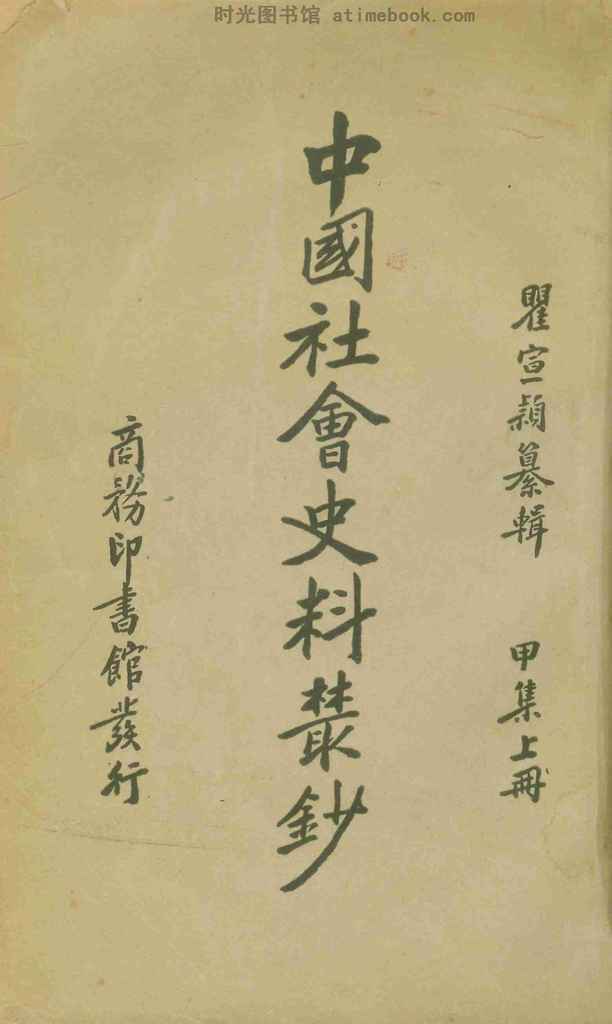 时光图书馆 atimebook.com
瞿宣穎纂輯 甲集上冊
中國社會史料叢鈔
商務印書館發行